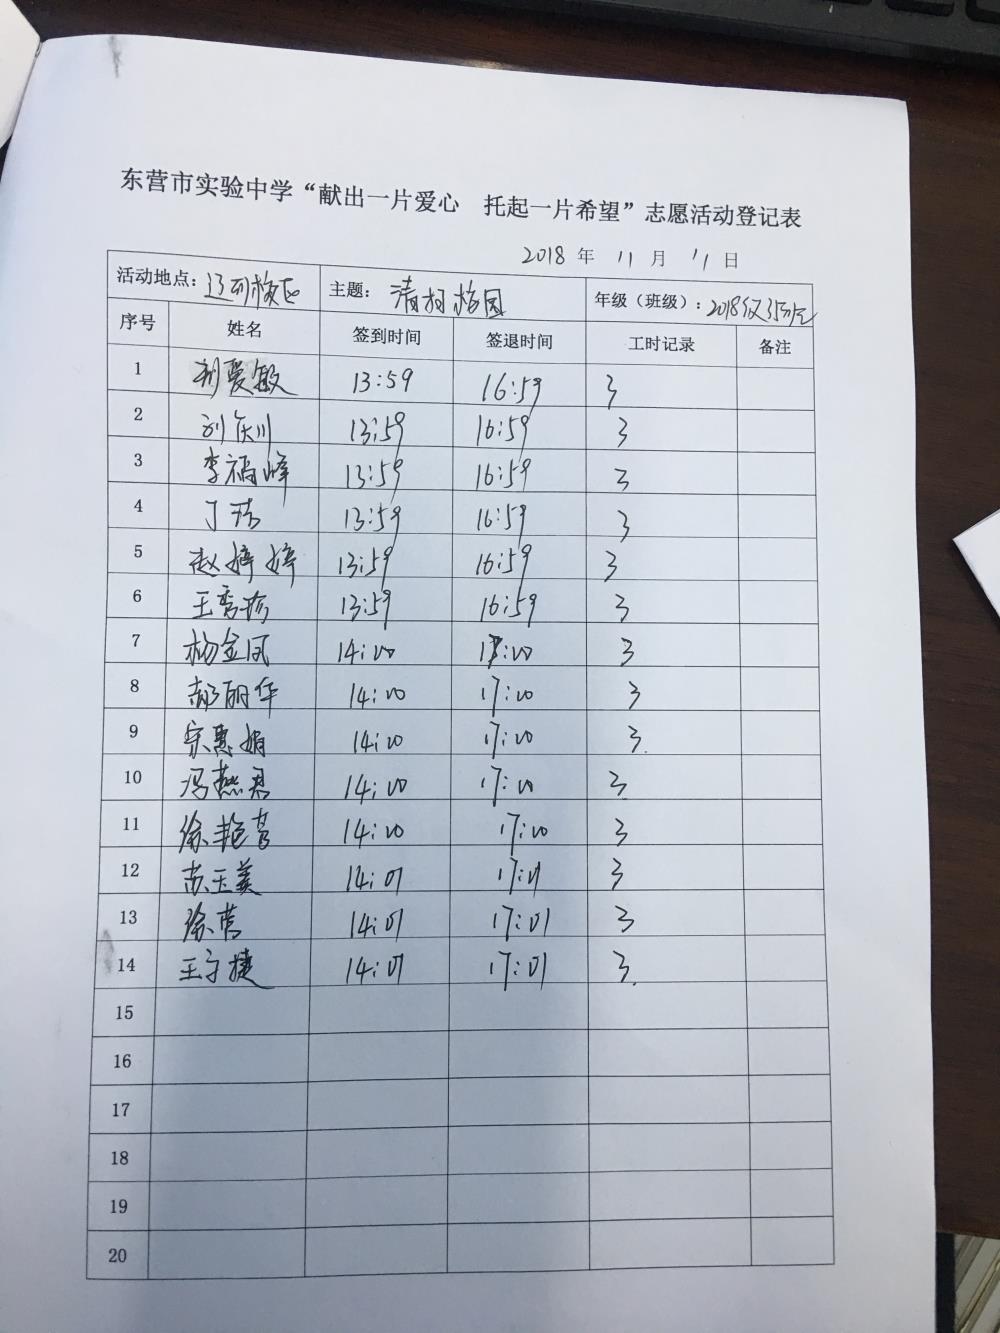 东营市实验中学“献出一片爱心 托起一片希望”志愿活动登记表
2018 年 11 月 11 日
活动地点： 校区 主题： 清扫校园 年级（班级）：2018级
序号 姓名 签到时间 签退时间 工时记录 备注
1 刘爱敏 13:59 16:59 3
2 刘庆川 13:59 16:59 3
3 李福峰 13:59 16:59 3
4 丁 13:59 16:59 3
5 赵婷婷 13:59 16:59 3
6 王秀珍 13:59 16:59 3
7 杨金凤 14:00 17:00 3
8 郝丽华 14:00 17:00 3
9 宋惠娟 14:00 17:00 3
10 冯燕君 14:00 17:00 3
11 徐艳 14:00 17:00 3
12 苏玉美 14:01 17:01 3
13 徐营 14:01 17:01 3
14 王子捷 14:01 17:01 3
15
16
17
18
19
20